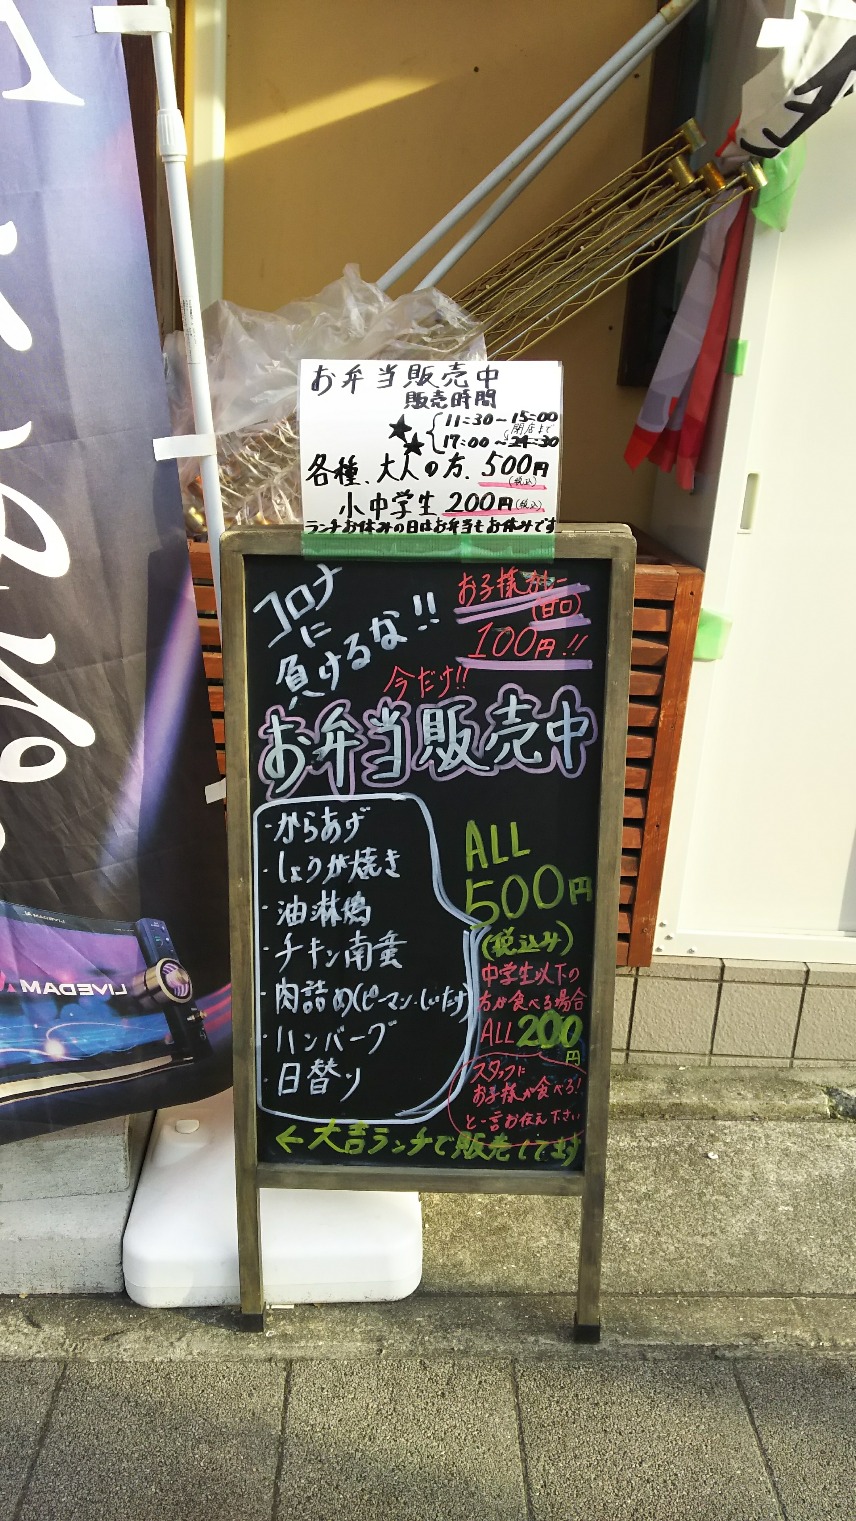 お弁当販売中
販売時間
11:30～15:00
閉店まで
17:00～24:30
各種、大人の方、500円
(税込)
小中学生 200円(税込)
ランチお休みの日はお弁当もお休みです
コロナ
に
負けるな!!
お子様カレー
(甘口)
100円!!
今だけ!!
お弁当販売中
・からあげ
・しょうが焼き
・油淋鶏
・チキン南蛮
・肉詰め(ピーマン・しいたけ)
・ハンバーグ
・日替り
ALL
500円
(税込み)
中学生以下の
方が食べる場合
ALL200
円
スタッフに
お子様が食べる!
と一言お伝え下さい
←大吉ランチで販売してます
LIVEDAM